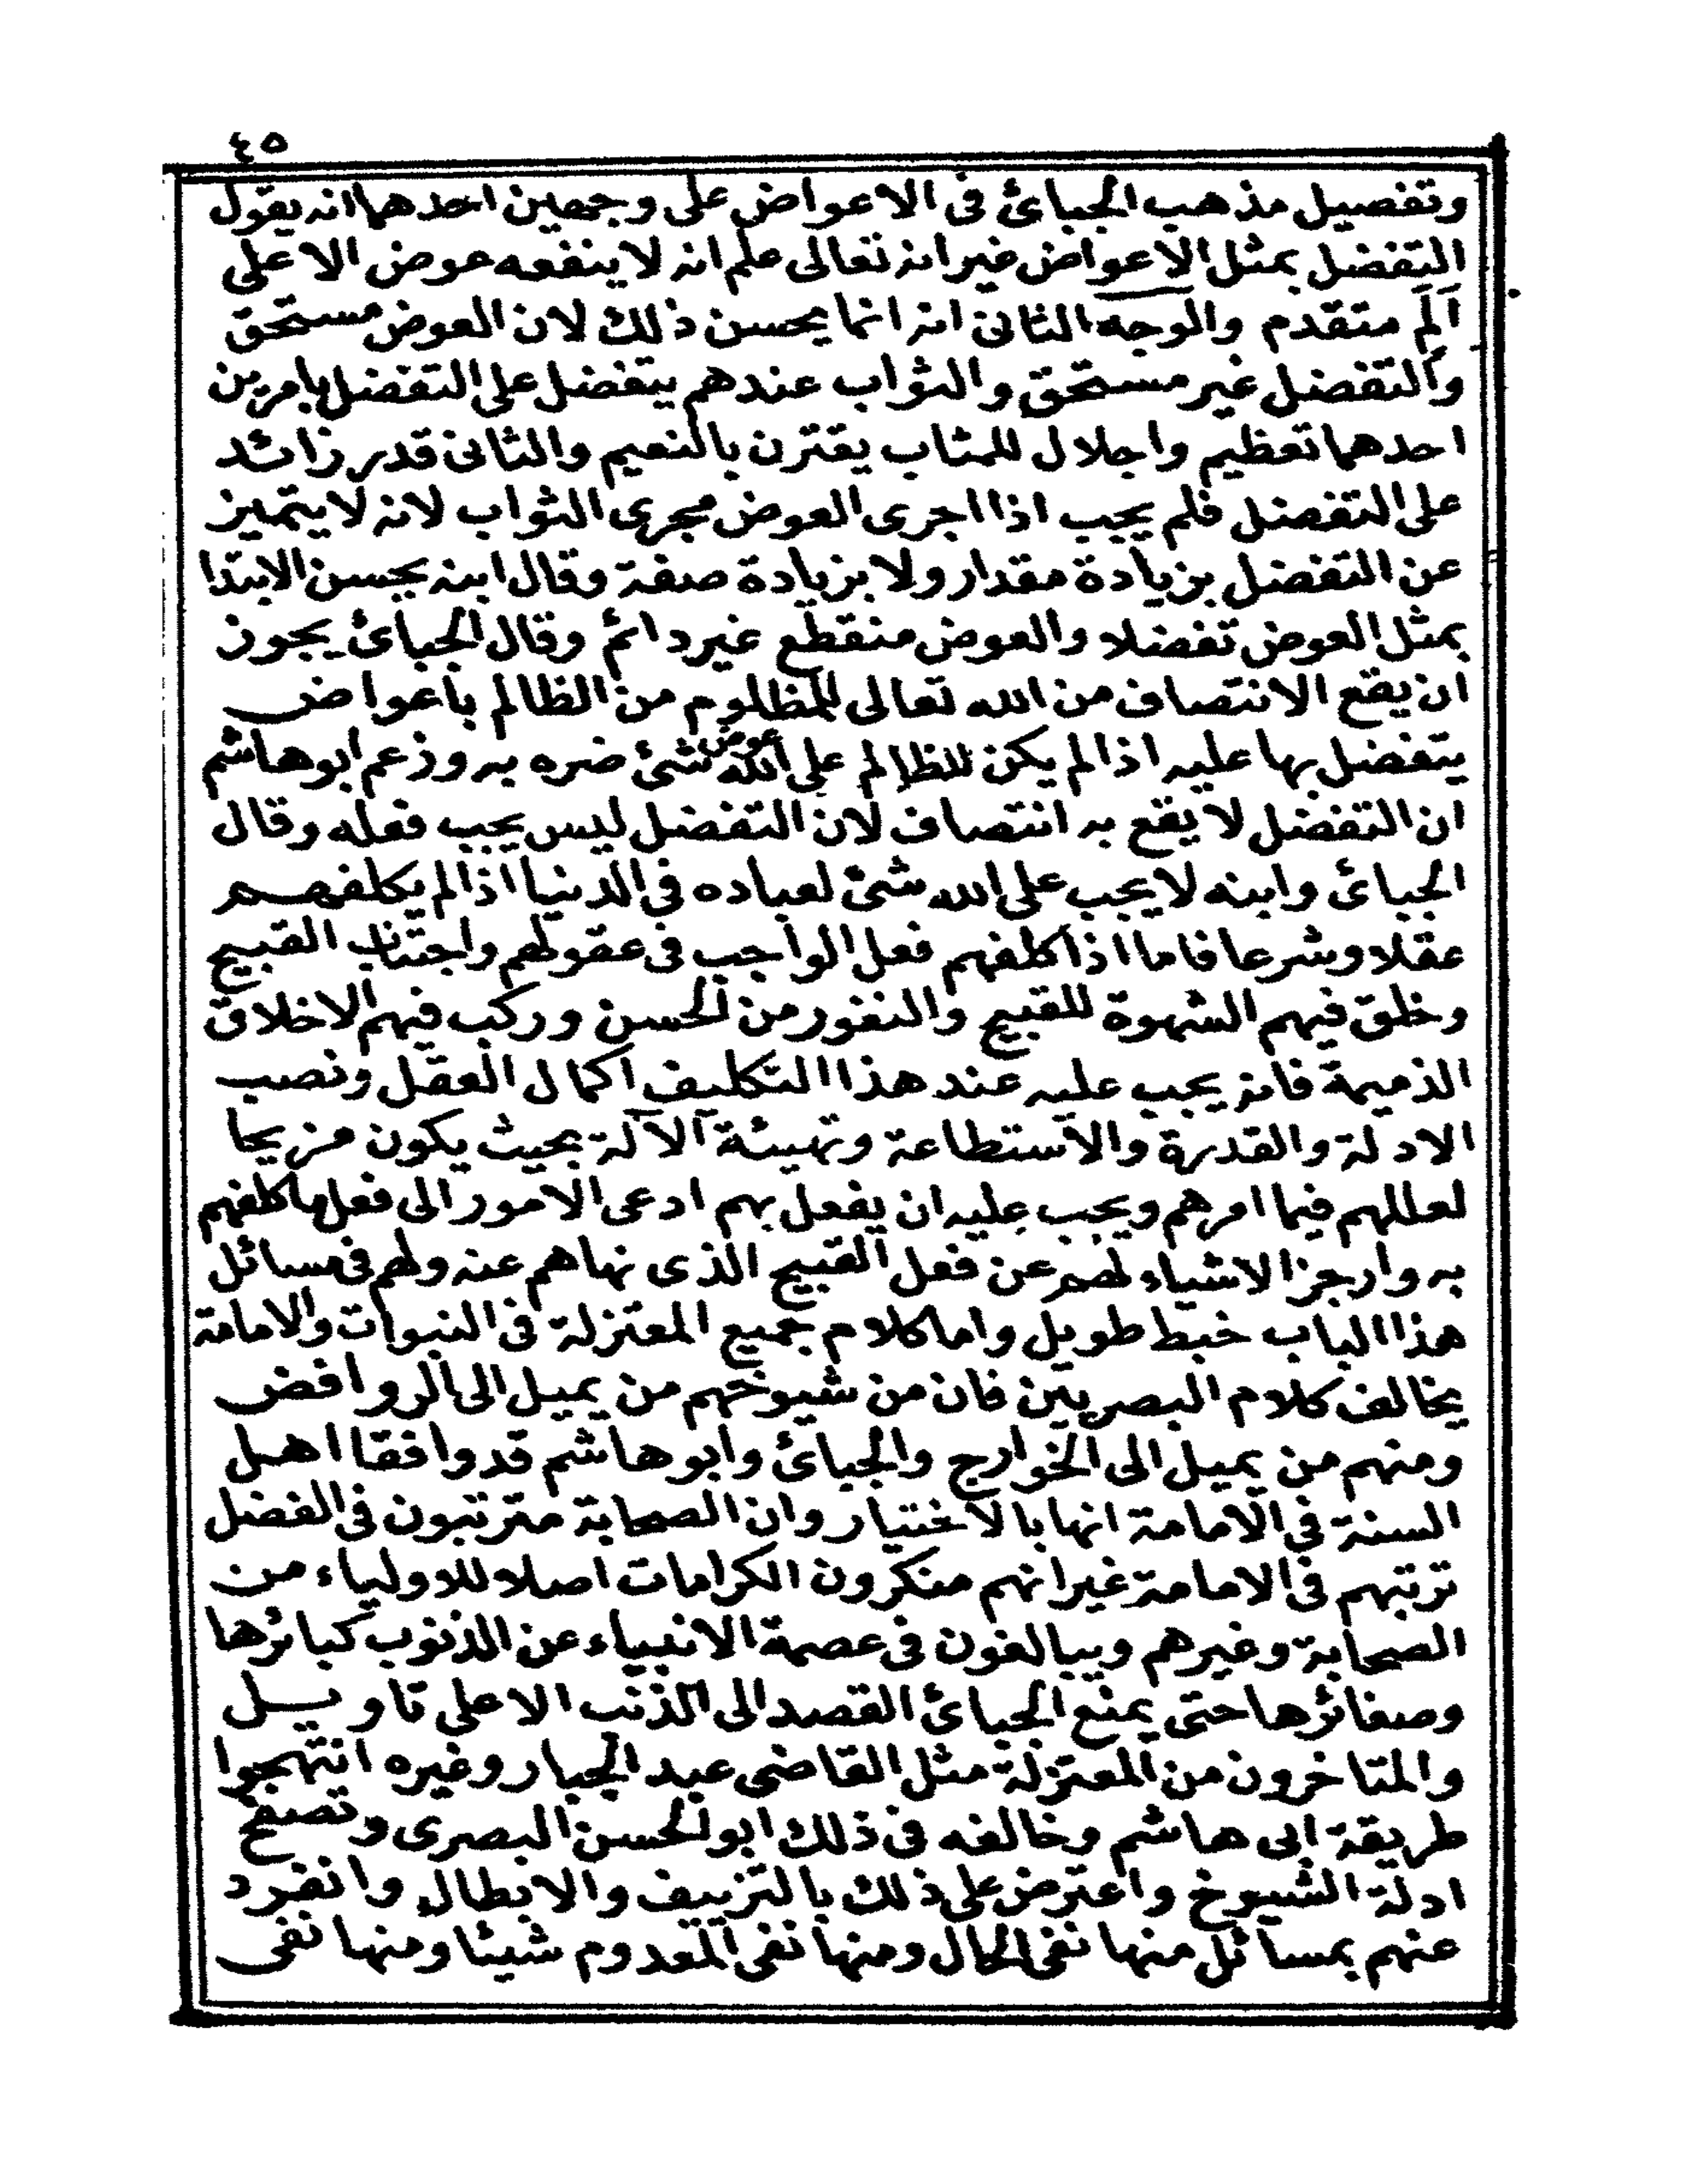 ٤٥
وتفصيل مذهب الجبائ فى الاعواض على وجهين احدهما انه يقول
التفضل بمثل الاعواض غير انه تعالى علم انه لا ينفعه عوض الا على
الم متقدم والوجه الثانى انه انما يحسن ذلك لان العوض مستحق
والتفضل غير مستحق والثواب عندهم يتفضل على التفضل بامرين
احدهما تعظيم واجلال للمثاب يقترن بالنعيم والثانى قدر زائد
على التفضل فلم يجب اذا اجرى العوض مجرى الثواب لانه لا يتميز
عن التفضل بزيادة مقدار ولا بزيادة صفة وقال ابنه يحسن الابتدا
بمثل العوض تفضلا والعوض منقطع غير دائم وقال الجبائ يجوز
ان يقع الانتصاف من الله تعالى للمظلوم من الظالم باعواض
يتفضل بها عليه اذا لم يكن للظالم على الله عوض شئ ضره به وزعم ابو هاشم
ان التفضل لا يقع به انتصاف لان التفضل ليس يجب فعله وقال
الجبائ وابنه لا يجب على الله شئ لعباده فى الدنيا اذا لم يكلفهم
عقلا وشرعا فاما اذا كلفهم فعل الواجب فى عقولهم واجتناب القبيح
وخلق فيهم الشهوة للقبيح والنفور من الحسن وركب فيهم الاخلاق
الذميمة فانه يجب عليه عند هذا التكليف اكمال العقل ونصب
الادلة والقدرة والاستطاعة وتهيئة الآلة بحيث يكون مزيحا
لعللهم فيما امرهم ويجب عليه ان يفعل بهم ادعى الامور الى فعل ما كلفهم
به وارجز الاشياء لهم عن فعل القبيح الذى نهاهم عنه ولهم فى مسائل
هذا الباب خبط طويل واما كلام جميع المعتزلة فى النبوات والامامة
يخالف كلام البصريين فان من شيوخهم من يميل الى الروافض
ومنهم من يميل الى الخوارج والجبائ وابو هاشم قد وافقا اهل
السنة فى الامامة انها بالاختيار وان الصحابة مترتبون فى الفضل
ترتبهم فى الامامة غير انهم منكرون الكرامات اصلا للاولياء من
الصحابة وغيرهم ويبالغون فى عصمة الانبياء عن الذنوب كبائرها
وصغائرها حتى يمنع الجبائ القصد الى الذنب الا على تاويل
والمتاخرون من المعتزلة مثل القاضى عبد الجبار وغيره انتهجوا
طريقة ابى هاشم وخالفه فى ذلك ابو الحسن البصرى وتصفح
ادلة الشيوخ واعترض على ذلك بالتزييف والابطال وانفرد
عنهم بمسائل منها نفى الحال ومنها نفى المعدوم شيئا ومنها نفى